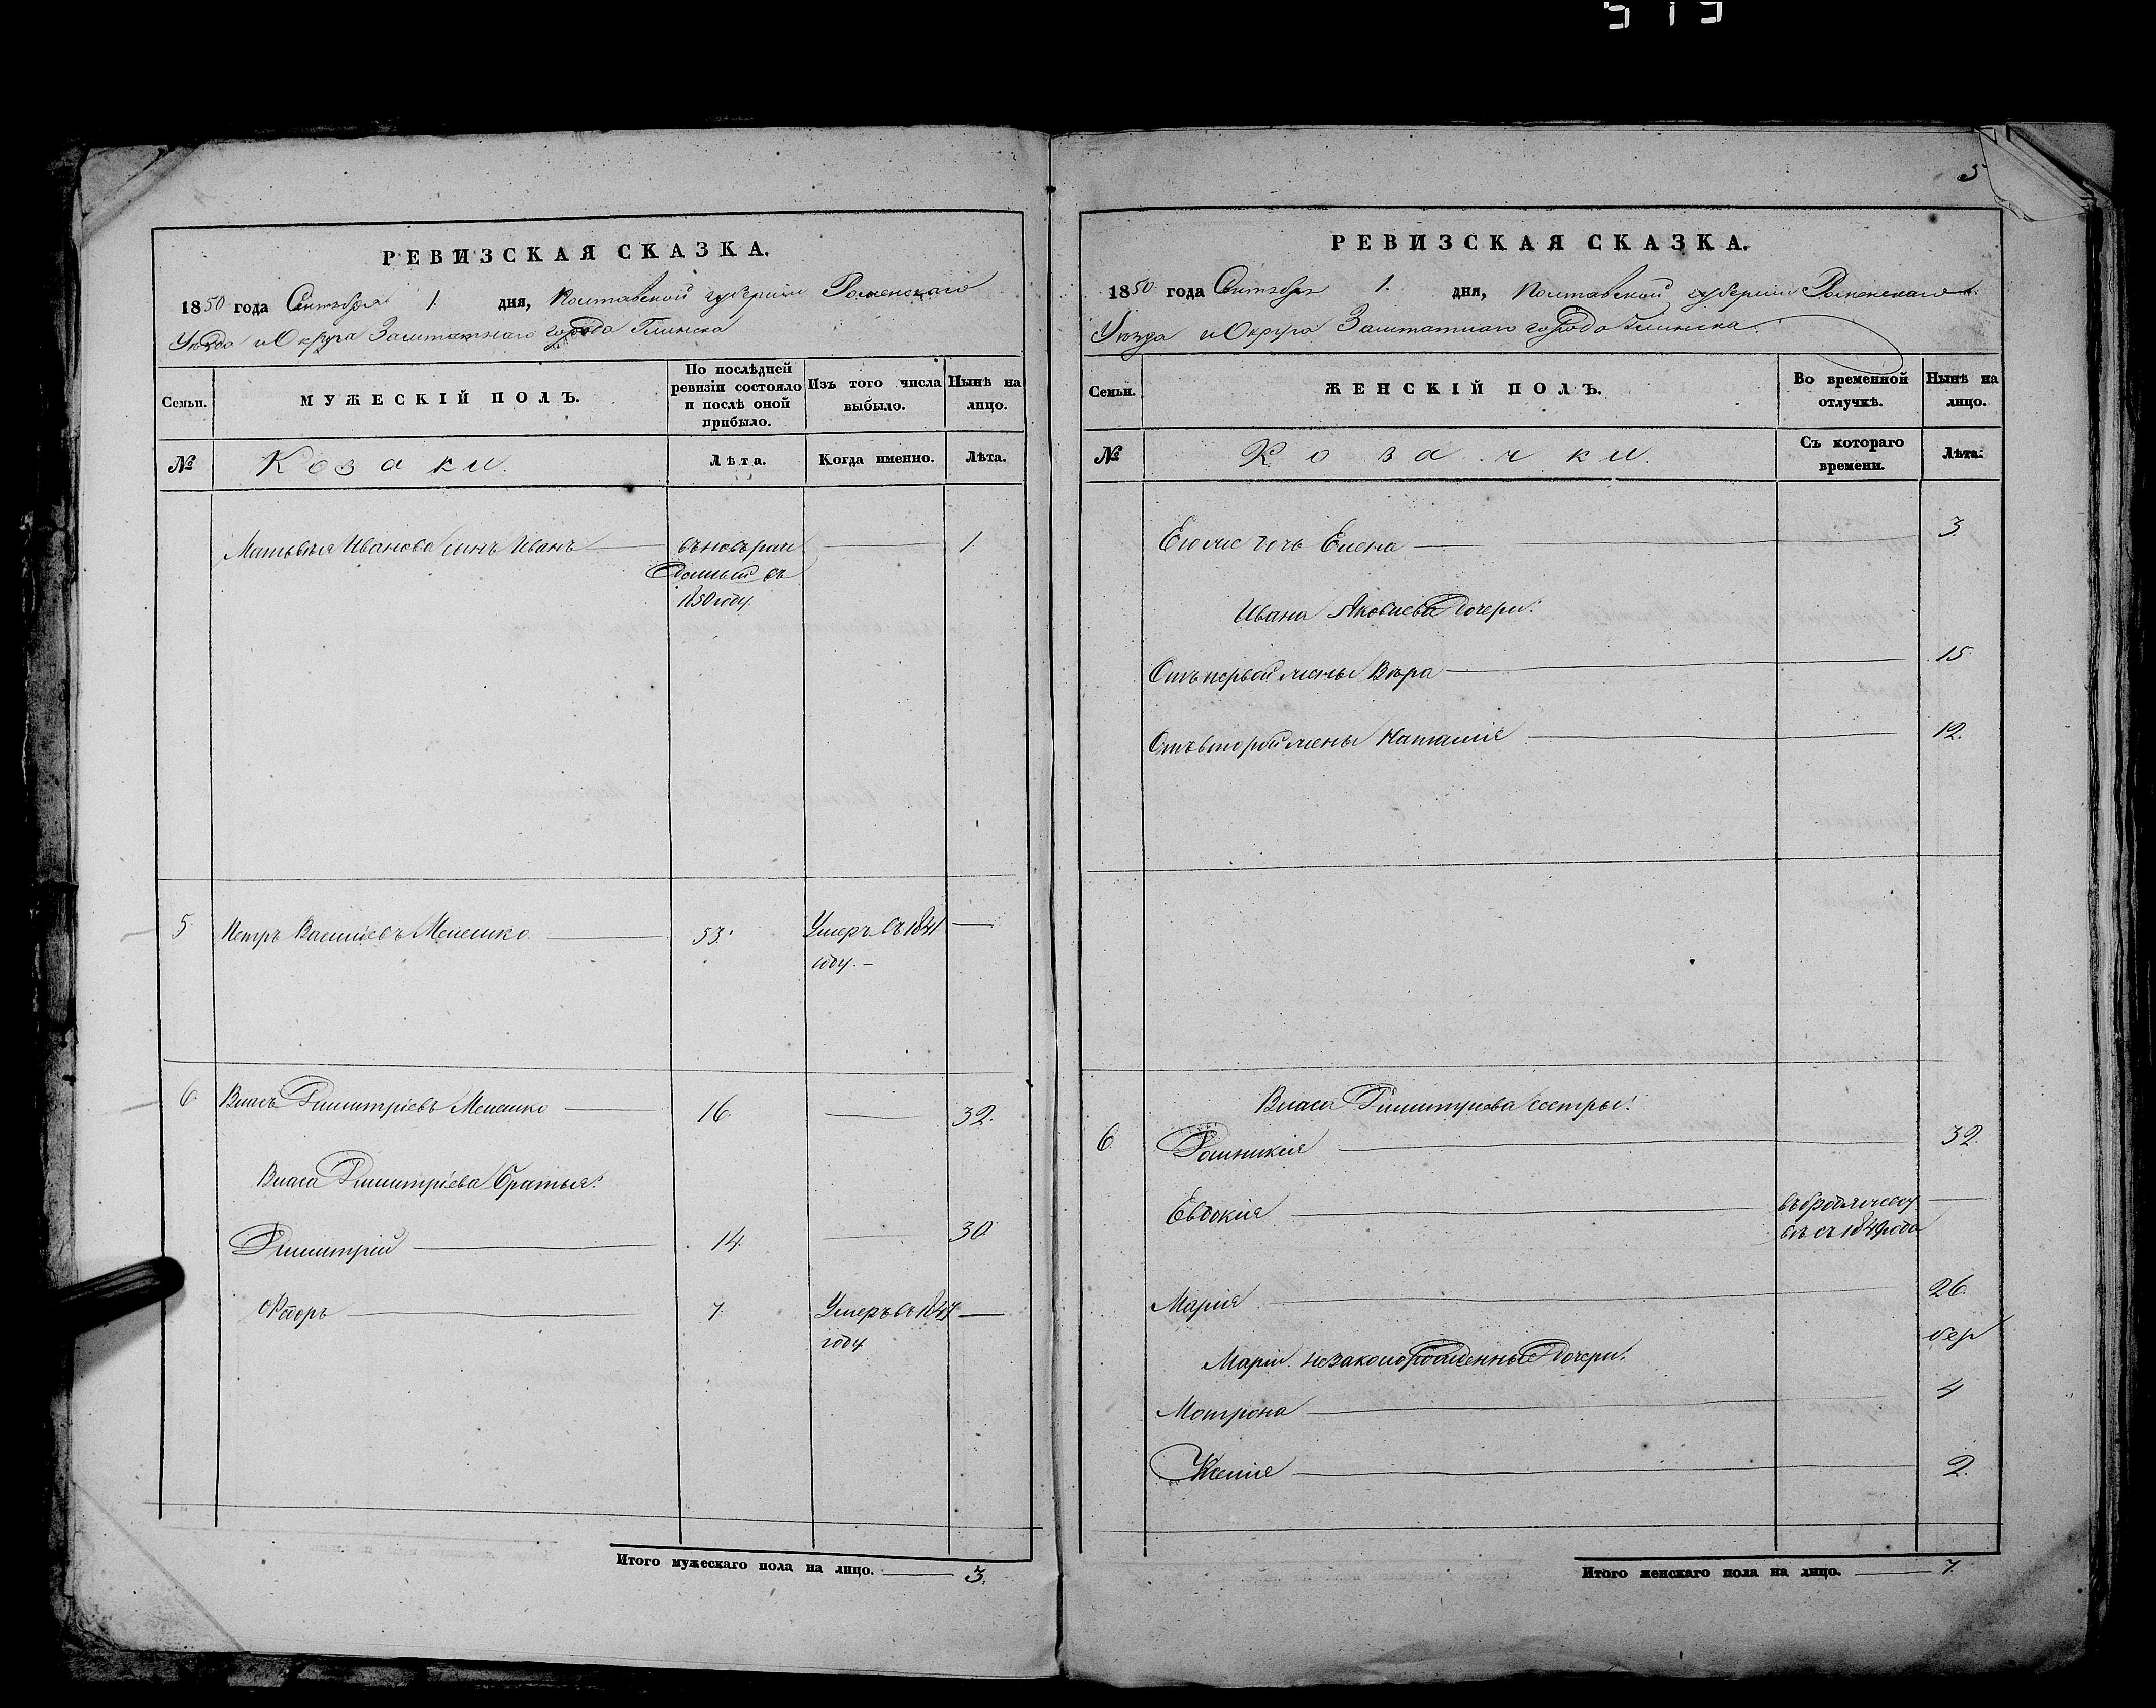 519
РЕВИЗСКАЯ СКАЗКА.
1850 года Сентября 1. дня, Полтавской губернии Роменскаго
Уѣзда и Округа Заштатнаго города Глинска
Семьи.
МУЖЕСКІЙ ПОЛЪ.
По послѣдней ревизіи состояло и послѣ оной прибыло.
Изъ того числа выбыло.
Нынѣ на лицо.
№
Козаки.
Лѣта.
Когда именно.
Лѣта.
Матвѣя Иванова сынъ Иванъ 1.
въ 1850 году
5 Петръ Васильевъ Мелешко 53. Умеръ въ 1841
году. —
6 Власъ Димитріевъ Мелешко 16. 32.
Власа Димитріева братья:
Димитрій 14. 30
Ѳедоръ 7. Умеръ въ 1847
году
Итого мужескаго пола на лицо. 3.
5
РЕВИЗСКАЯ СКАЗКА.
1850 года Сентября 1. дня, Полтавской губернии Роменскаго
Уѣзда и Округа Заштатнаго города Глинска.
Семьи.
ЖЕНСКІЙ ПОЛЪ.
Во временной отлучкѣ.
Нынѣ на лицо.
№
Козачки.
Съ котораго времени.
Лѣта.
Егоже дочь Елена 3.
Ивана Яковлева дочери:
Отъ первой жены Вѣра 15.
Отъ второй жены Наталія 12.
Власа Димитріева сестры:
6. Домникія 32.
Евдокія въ бродяжест
вѣ съ 1849 года
Марія 26.
Маріи незаконорожденные дочери:
Мотрона 4
Ксенія 2.
Итого женскаго пола на лицо. 7.